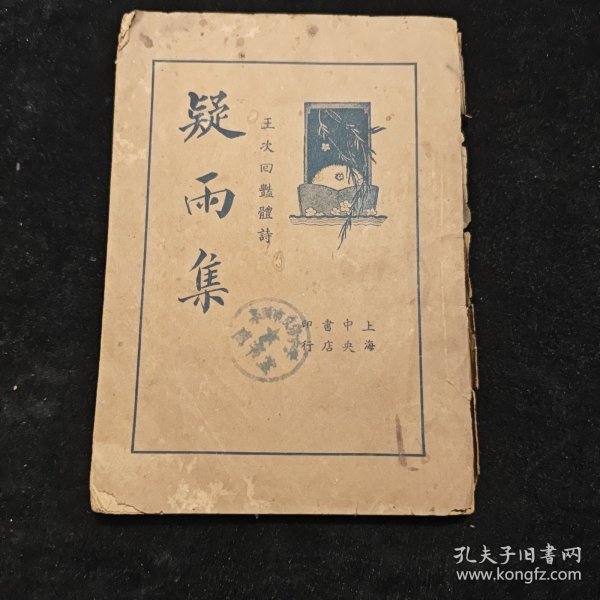 疑雨集
王次回豔體詩
上海
中央
書店
印行
孔夫子旧书网
www.kongfz.com